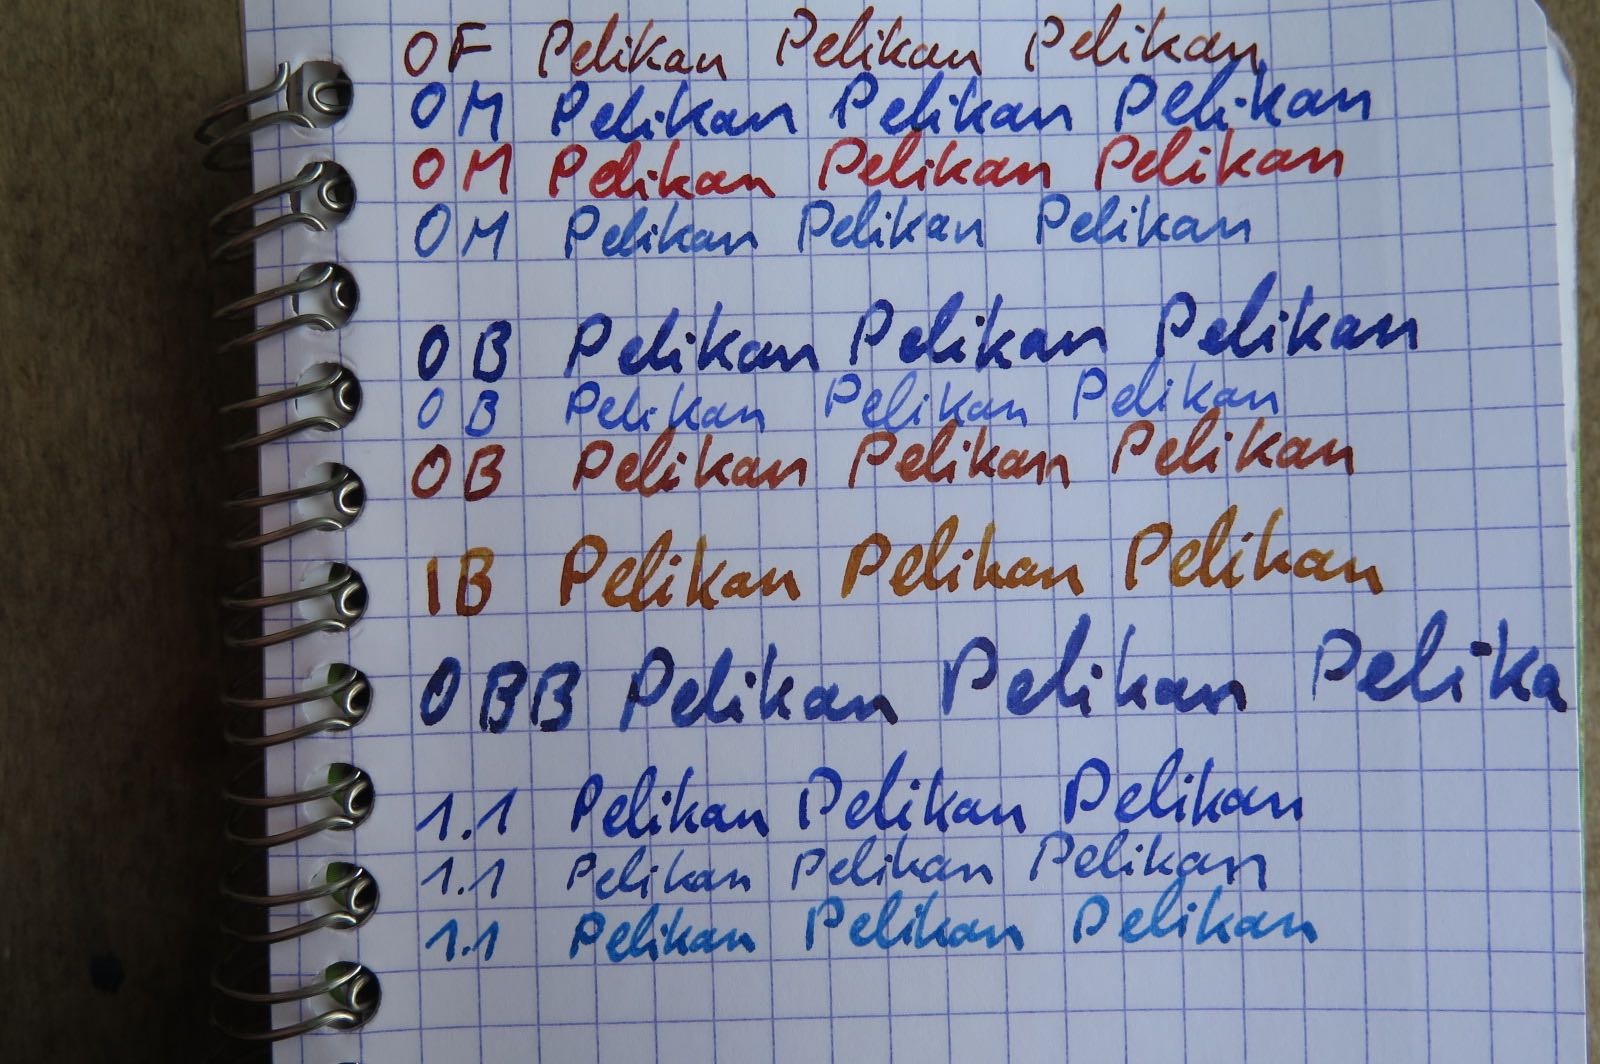 OF Pelikan Pelikan Pelikan
OM Pelikan Pelikan Pelikan
OM Pelikan Pelikan Pelikan
OM Pelikan Pelikan Pelikan
OB Pelikan Pelikan Pelikan
OB Pelikan Pelikan Pelikan
OB Pelikan Pelikan Pelikan
IB Pelikan Pelikan Pelikan
OBB Pelikan Pelikan Pelika
1.1 Pelikan Pelikan Pelikan
1.1 Pelikan Pelikan Pelikan
1.1 Pelikan Pelikan Pelikan